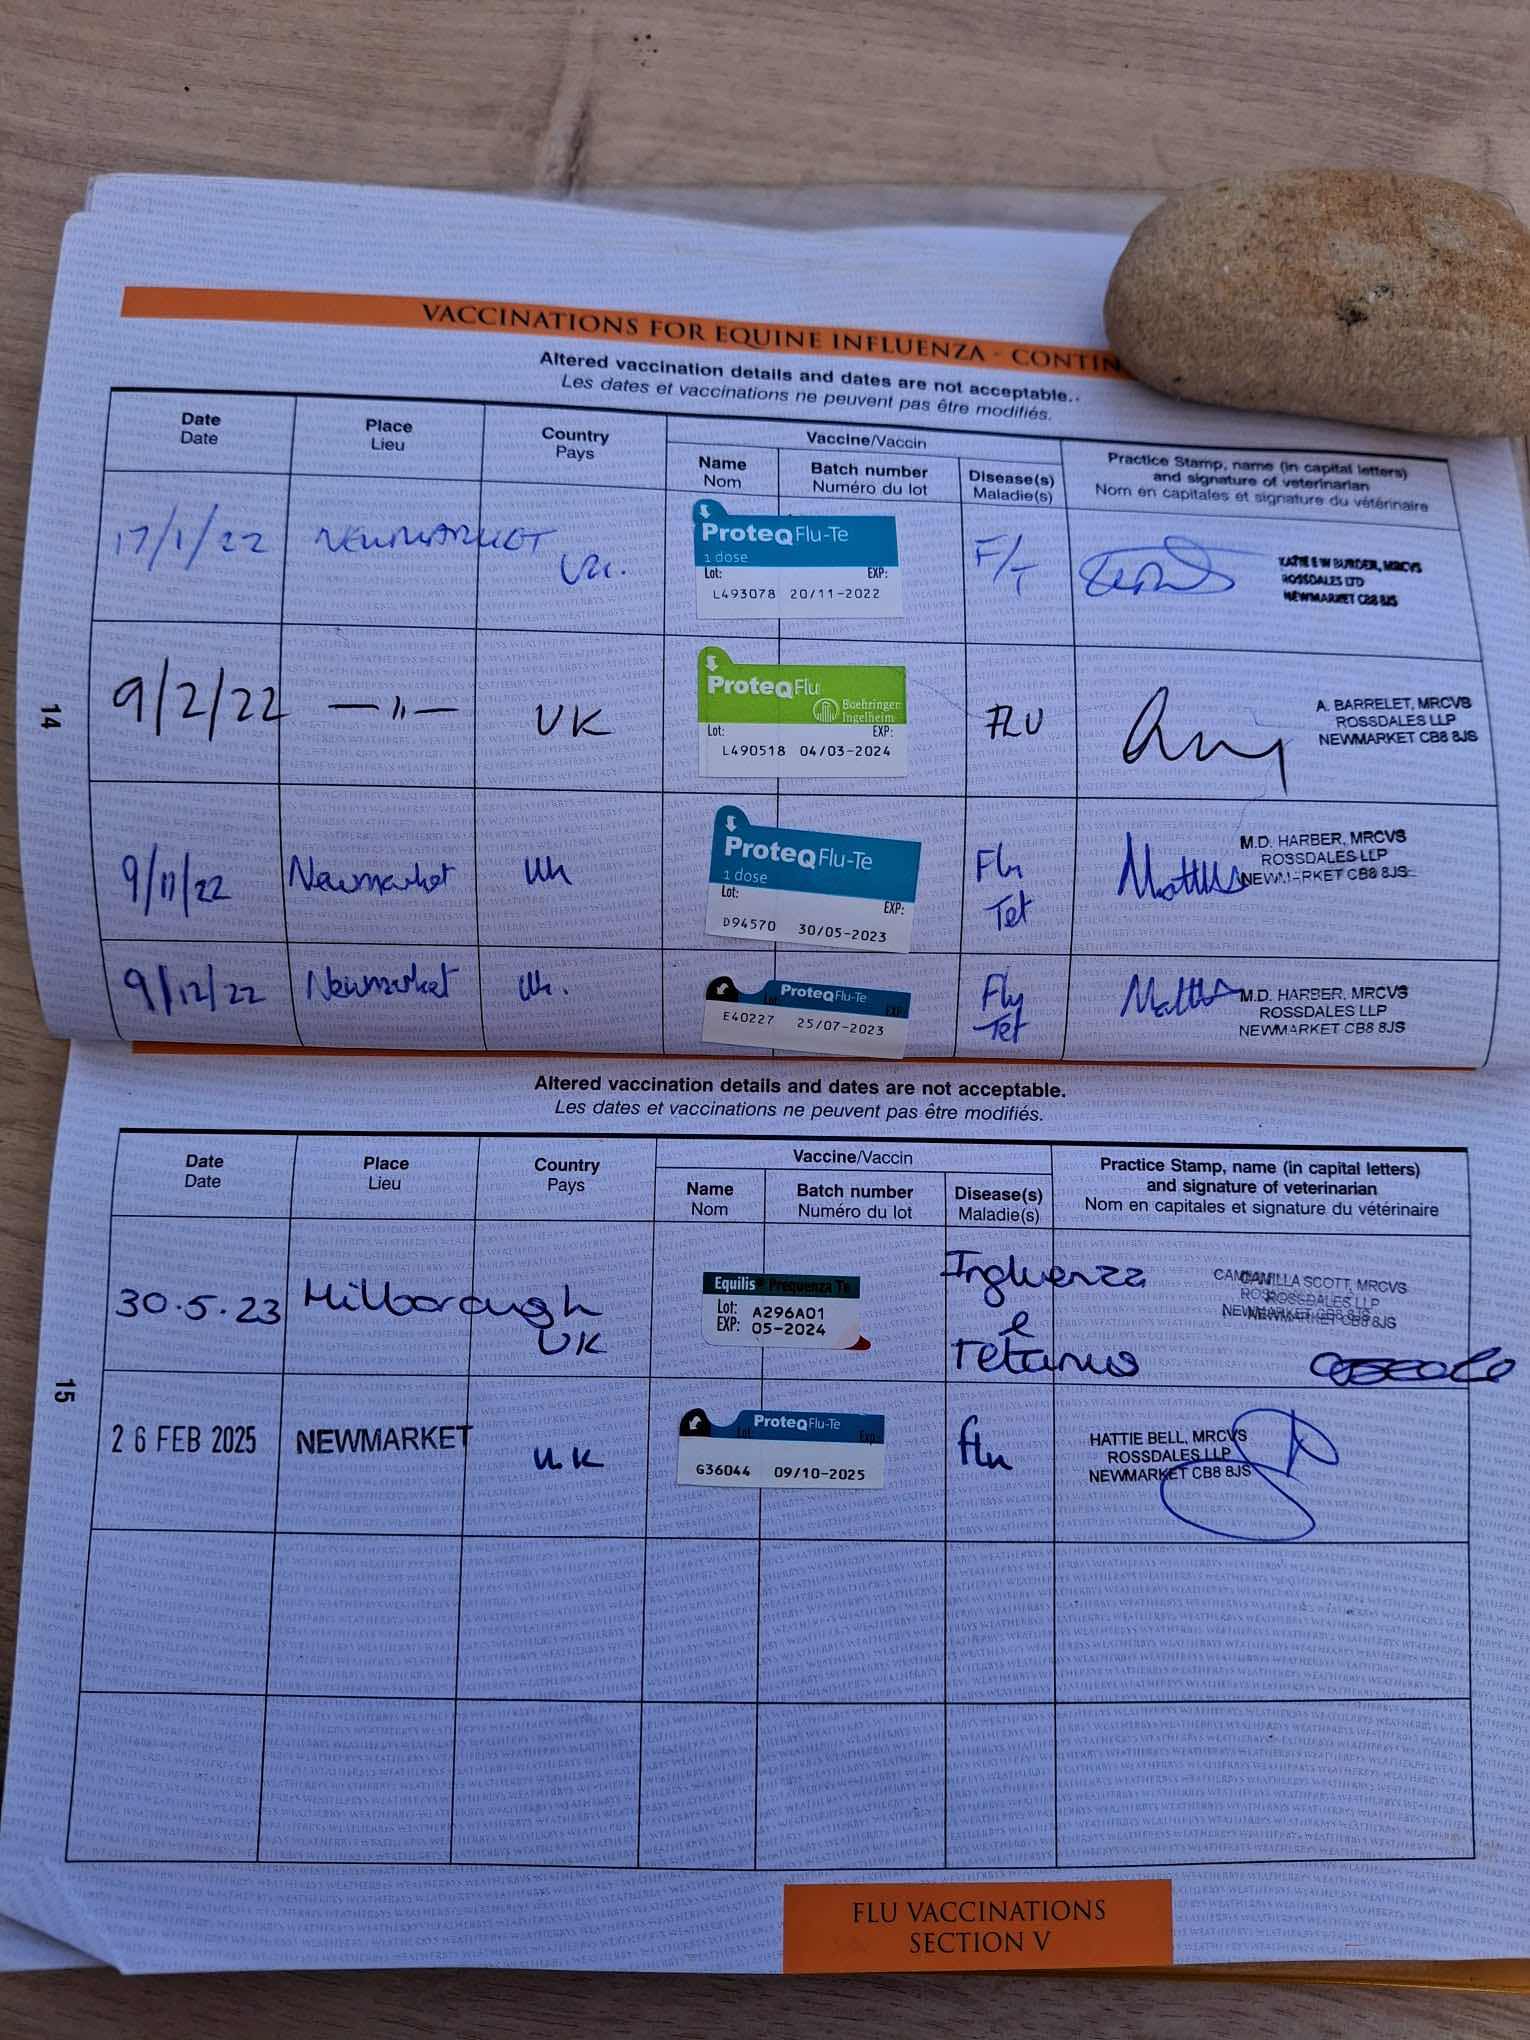 VACCINATIONS FOR EQUINE INFLUENZA - CONTIN
Altered vaccination details and dates are not acceptable..
Les dates et vaccinations ne peuvent pas être modifiés.
Date
Date
Place
Lieu
Country
Pays
Vaccine/Vaccin
Name
Nom
Batch number
Numéro du lot
Disease(s)
Maladie(s)
Practice Stamp, name (in capital letters)
and signature of veterinarian
Nom en capitales et signature du vétérinaire
17/1/22
NEWMARKET
UK.
ProteqFlu-Te
1 dose
Lot:
EXP:
L493078 20/11-2022
F/T
KATIE E W BURDER, MRCVS
ROSSDALES LTD
NEWMARKET CB8 8JS
14
9/2/22
—"—
UK
ProteqFlu
Boehringer
Ingelheim
Lot:
EXP:
L490518 04/03-2024
FLU
A. BARRELET, MRCVS
ROSSDALES LLP
NEWMARKET CB8 8JS
9/11/22
Newmarket
Uk
ProteqFlu-Te
1 dose
Lot:
EXP:
D94570 30/05-2023
Flu
Tet
M.D. HARBER, MRCVS
ROSSDALES LLP
NEWMARKET CB8 8JS
9/12/22
Newmarket
Uk.
ProteqFlu-Te
Lot
EXP
E40227 25/07-2023
Flu
Tet
M.D. HARBER, MRCVS
ROSSDALES LLP
NEWMARKET CB8 8JS
Altered vaccination details and dates are not acceptable.
Les dates et vaccinations ne peuvent pas être modifiés.
Date
Date
Place
Lieu
Country
Pays
Vaccine/Vaccin
Name
Nom
Batch number
Numéro du lot
Disease(s)
Maladie(s)
Practice Stamp, name (in capital letters)
and signature of veterinarian
Nom en capitales et signature du vétérinaire
30.5.23
Hilborough
UK
Equilis Prequenza Te
Lot: A296A01
EXP: 05-2024
Influenza
e
Tetanus
CAMILLA SCOTT, MRCVS
ROSSDALES LLP
NEWMARKET CB8 8JS
15
26 FEB 2025
NEWMARKET
U.K
ProteqFlu-Te
Lot
Exp:
G36044 09/10-2025
flu
HATTIE BELL, MRCVS
ROSSDALES LLP
NEWMARKET CB8 8JS
FLU VACCINATIONS
SECTION V